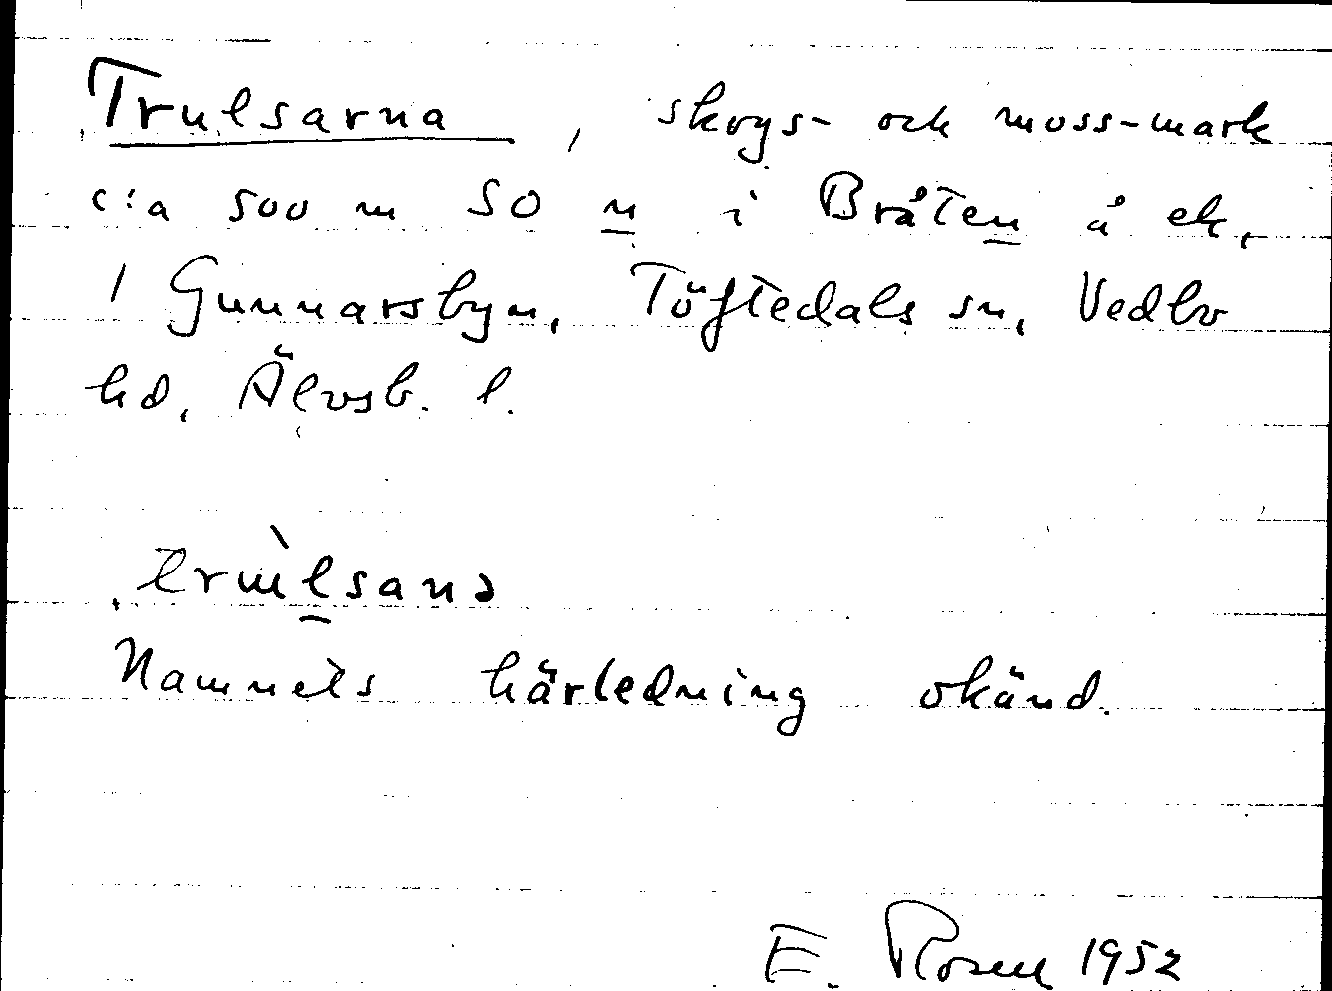 Trulsarna, skogs- och moss-mark
c:a 500 m SO n i Bråten å ek.
1 Gunnarsbyn, Töftedals sn, Vedbo
hd, Älvsb. l.
Namnets härledning okänd.
E. Rosen 1952